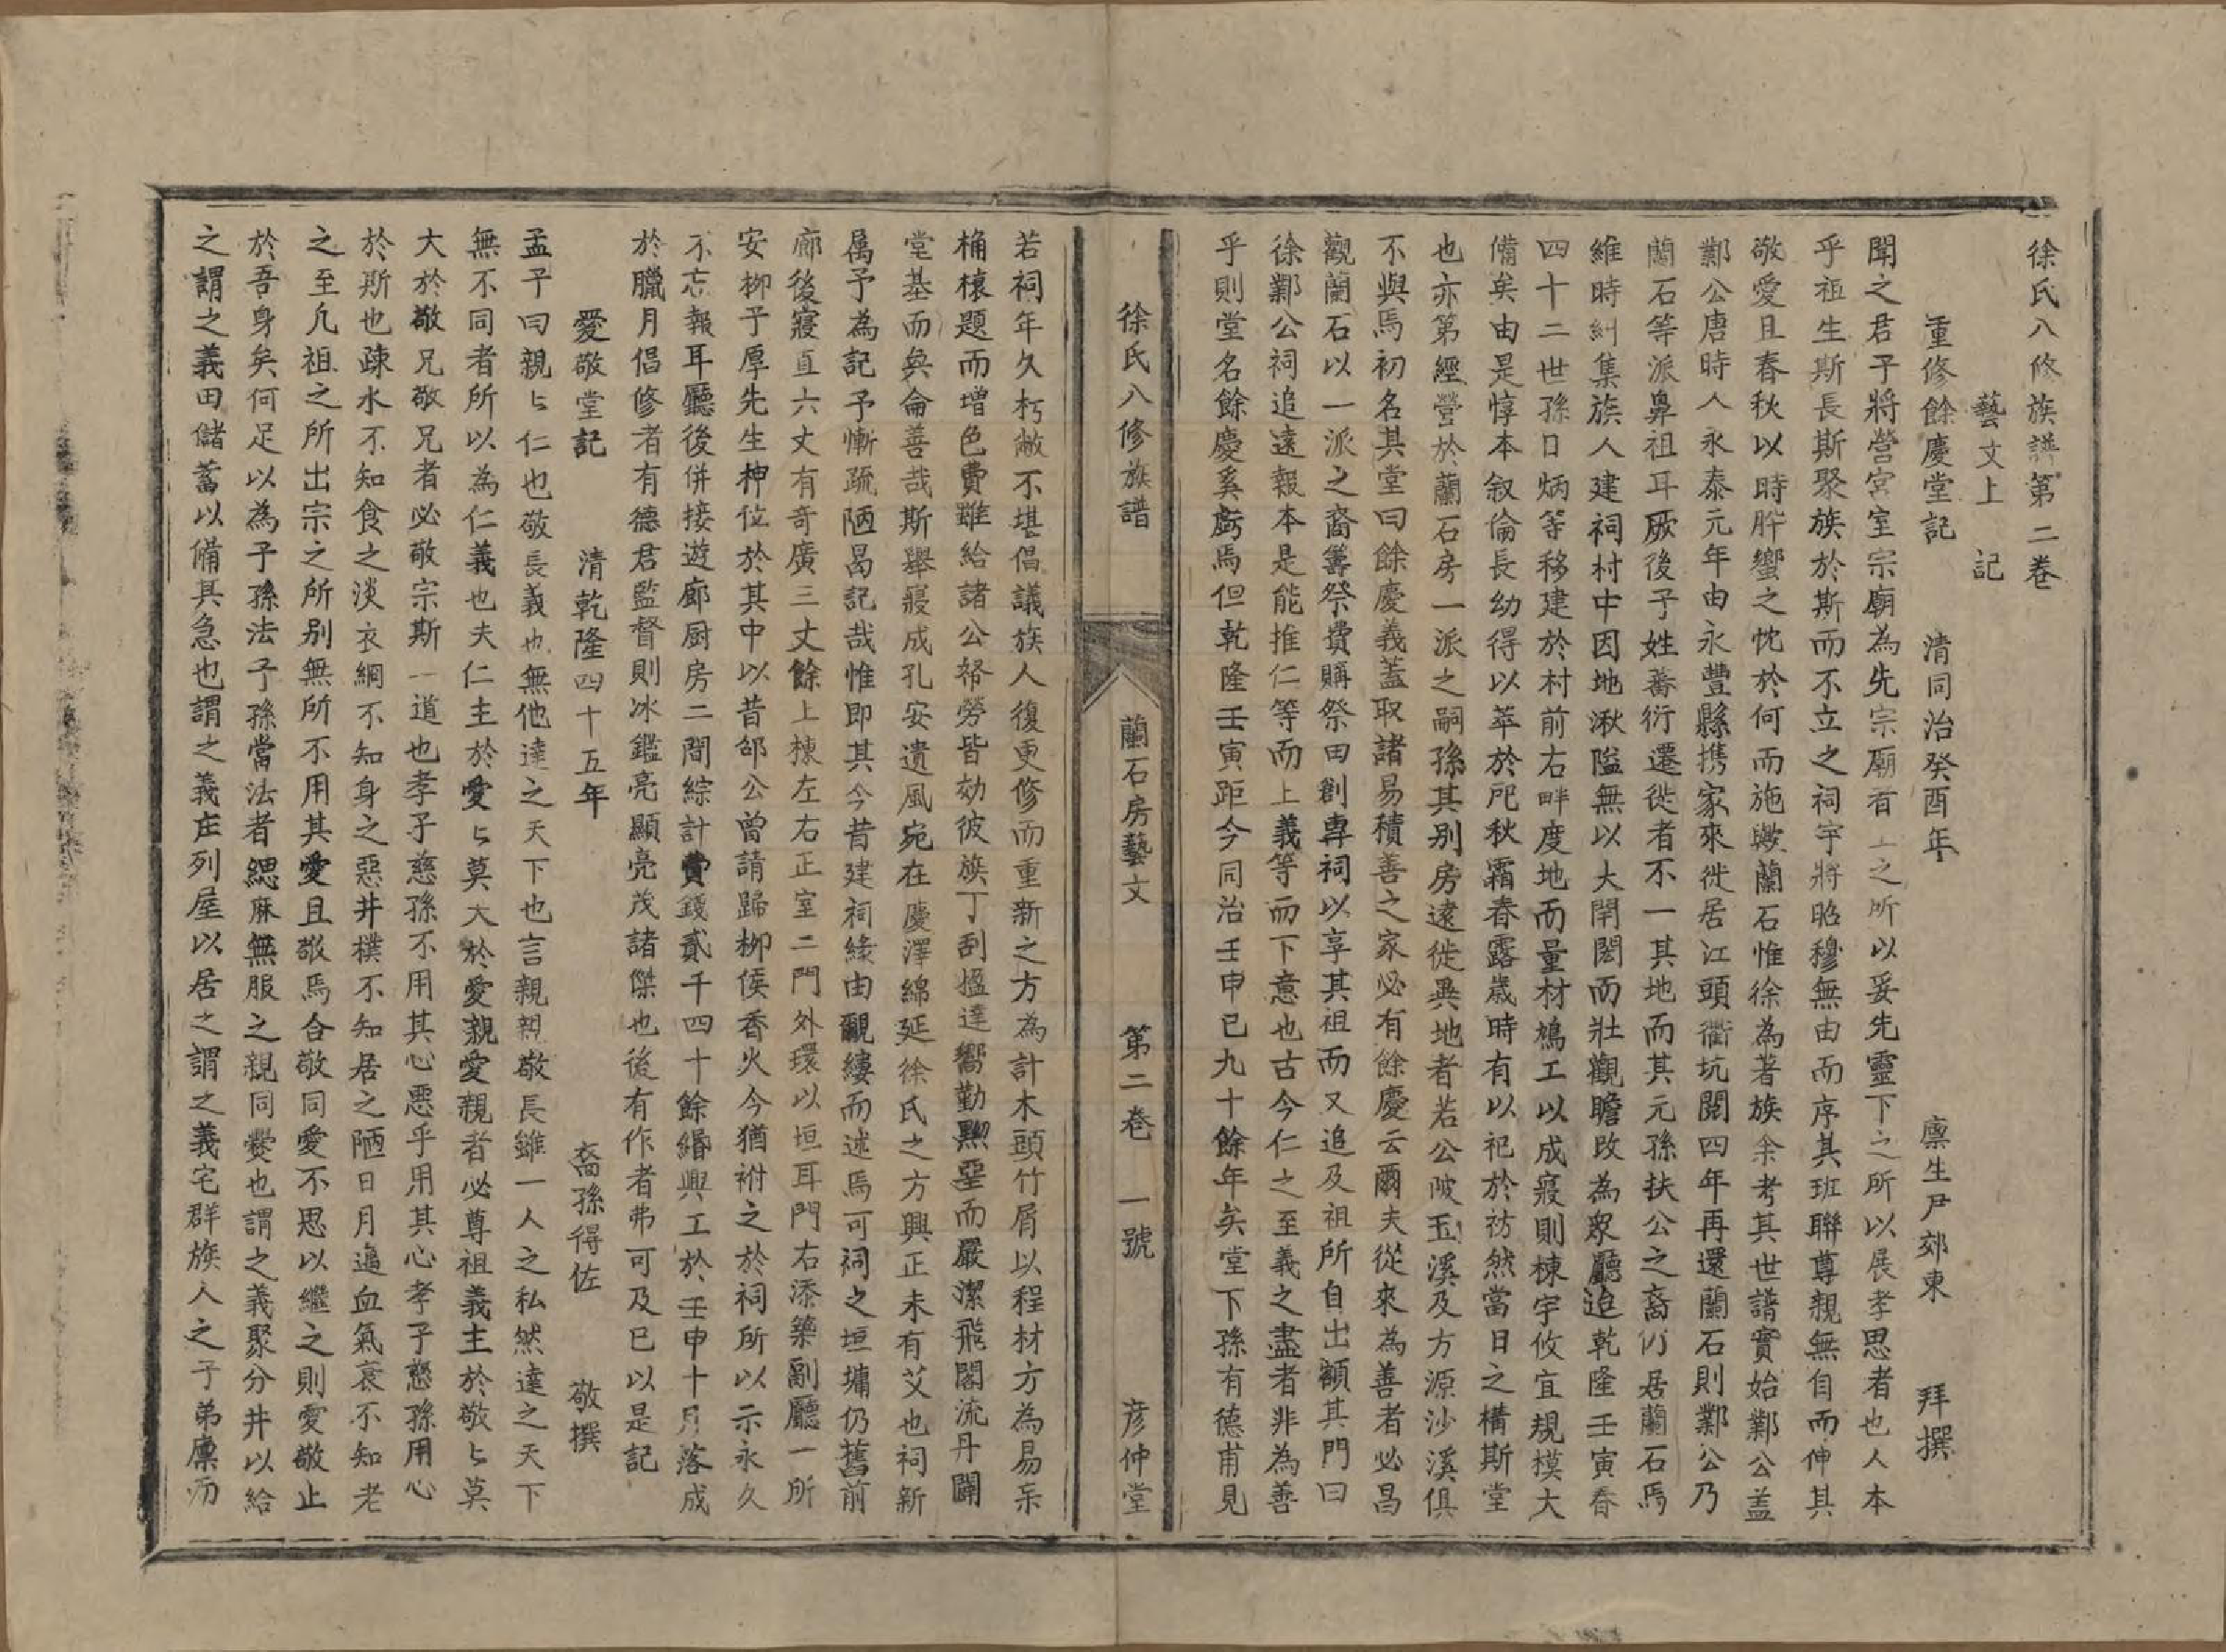 徐氏八修族譜第二卷
藝文上　記
重修餘慶堂記　清同治癸酉年　廪生尹郊東　拜撰
聞之君子將營宮室宗廟為先宗廟者上之所以妥先靈下之所以展孝思者也人本
乎祖生斯長斯聚族於斯而不立之祠宇將昭穆無由而序其班聯尊親無自而伸其
敬愛且春秋以時肸蠁之忱於何而施歟蘭石惟徐為著族余考其世譜實始鄴公蓋
鄴公唐時人永泰元年由永豐縣携家來徙居江頭衢坑閱四年再還蘭石則鄴公乃
蘭石等派鼻祖耳厥後子姓蕃衍遷徙者不一其地而其元孫扶公之裔仍居蘭石焉
維時糾集族人建祠村中因地湫隘無以大閈閎而壯觀瞻改為眾廳迨乾隆壬寅春
四十二世孫曰炳等移建於村前右畔度地而量材鳩工以成寢則棟宇攸宜規模大
備矣由是惇本叙倫長幼得以萃於咫秋霜春露歲時有以祀於祊然當日之構斯堂
也亦第經營於蘭石房一派之嗣孫其别房遠徙異地者若公陂玉溪及方源沙溪俱
不與焉初名其堂曰餘慶義蓋取諸易積善之家必有餘慶云爾夫從來為善者必昌
觀蘭石以一派之裔籌祭費購祭田創專祠以享其祖而又追及祖所自出額其門曰
徐鄴公祠追遠報本是能推仁等而上義等而下意也古今仁之至義之盡者非為善
乎則堂名餘慶奚虧焉但乾隆壬寅距今同治壬申已九十餘年矣堂下孫有德甫見
徐氏八修族譜　蘭石房藝文　第二卷　一號　彦仲堂
若祠年久朽敝不堪倡議族人復更修而重新之方為計木頭竹屑以程材方為易宗
桷榱題而增色費雖給諸公帑勞皆効彼族丁刮楹達嚮勤黝堊而嚴潔飛閣流丹闢
堂基而矣侖善哉斯舉寢成孔安遺風宛在慶澤綿延徐氏之方興正未有艾也祠新
属予為記予慚疏陋曷記哉惟即其今昔建祠緣由覼縷而述焉可祠之垣墉仍舊前
廊後寢直六丈有奇廣三丈餘上棟左右正室二門外環以垣耳門右添築副廳一所
安柳子厚先生神位於其中以昔邰公曾請歸柳侯香火今猶祔之於祠所以示永久
不忘報耳廳後併接遊廊厨房二間綜計費錢貳千四十餘緡興工於壬申十月落成
於臘月倡修者有德君監督則冰鑑亮顯亮茂諸傑也後有作者弗可及已以是記
愛敬堂記　清乾隆四十五年　裔孫得佐　敬撰
孟子曰親匕仁也敬長義也無他達之天下也言親親敬長雖一人之私然達之天下
無不同者所以為仁義也夫仁主於愛匕莫大於愛親愛親者必尊祖義主於敬匕莫
大於敬兄敬兄者必敬宗斯一道也孝子慈孫不用其心悪乎用其心孝子慈孫用心
於斯也疎水不知食之淡衣綱不知身之惡井樸不知居之陋日月邁血氣衰不知老
之至凢祖之所出宗之所别無所不用其愛且敬焉合敬同愛不思以繼之則愛敬止
於吾身矣何足以為子孫法子孫當法者緦麻無服之親同爨也謂之義聚分井以給
之謂之義田儲蓄以備其急也謂之義庄列屋以居之謂之義宅群族人之子弟廪而